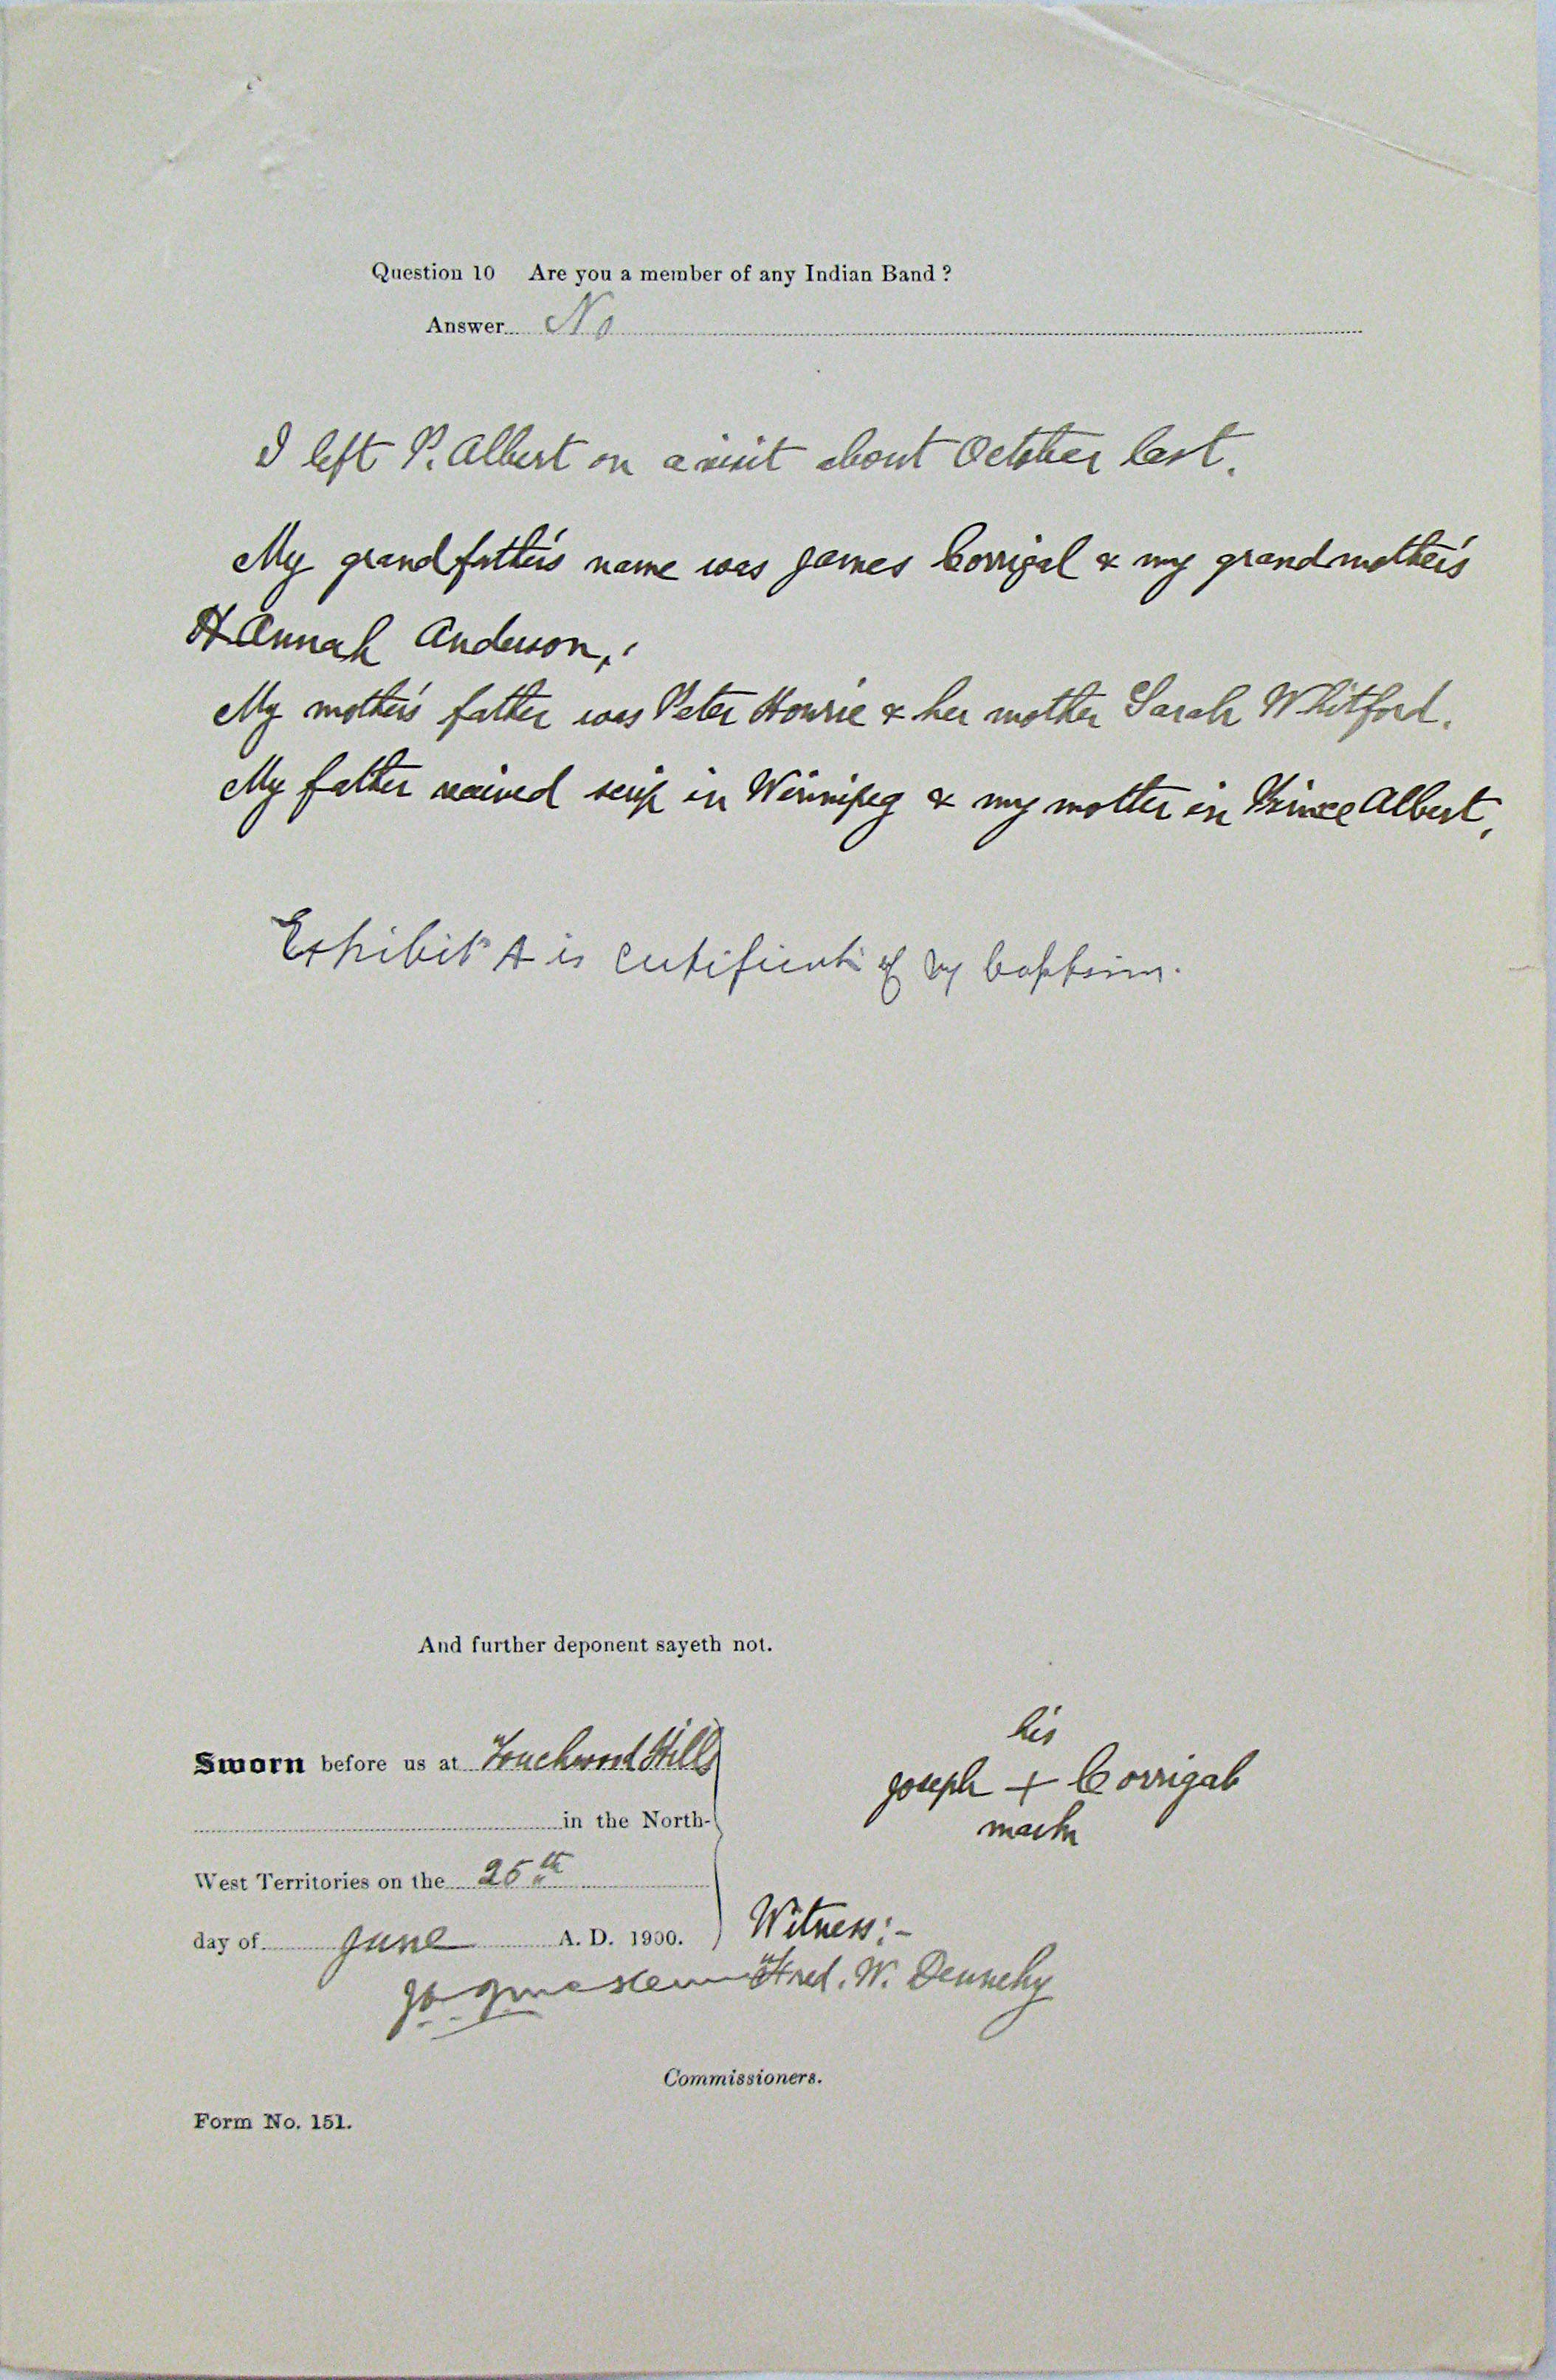 Question 10 Are you a member of any Indian Band ?
Answer No
I left P. Albert on a visit about October last.
My grandfather's name was James Corrigal & my grandmother's
Hannah Anderson,
My mother's father was Peter Howrie & her mother Sarah Whitford.
My father received scrip in Winnipeg & my mother in Prince Albert.
Exhibit A is certificate of my baptism.
And further deponent sayeth not.
Sworn before us at Touchwood Hills
in the North-
West Territories on the 25th
day of June A. D. 1900.
his
Joseph + Corrigal
mark
Witness:-
Fred. W. Dennehy
Commissioners.
Form No. 151.